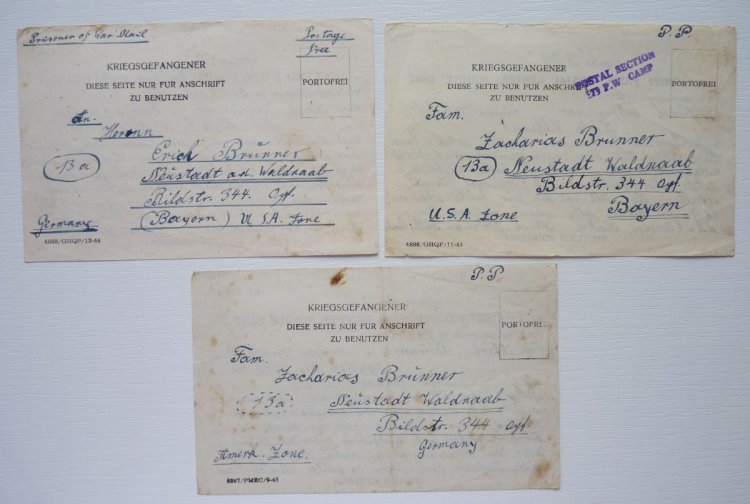 Prisoner of War Mail
Postage
Free
KRIEGSGEFANGENER
DIESE SEITE NUR FUR ANSCHRIFT
ZU BENUTZEN
PORTOFREI
An.
Herrn
Erich Brunner
13a
Neustadt a.d. Waldnaab
Bildstr. 344. Opf.
(Bayern) U.S.A. Zone
Germany
4888/GHQP/13-44
P.P.
POSTAL SECTION
P.W. CAMP
KRIEGSGEFANGENER
DIESE SEITE NUR FUR ANSCHRIFT
ZU BENUTZEN
PORTOFREI
Fam.
Zacharias Brunner
13a
Neustadt Waldnaab
Bildstr. 344 Opf.
Bayern
U.S.A. Zone
4888/GHQP/11-44
P.P
KRIEGSGEFANGENER
DIESE SEITE NUR FUR ANSCHRIFT
ZU BENUTZEN
PORTOFREI
Fam.
Zacharias Brunner
13a
Neustadt Waldnaab
Bildstr. 344 Opf
Germany
Amerk. Zone.
6887/PMEC/9-43